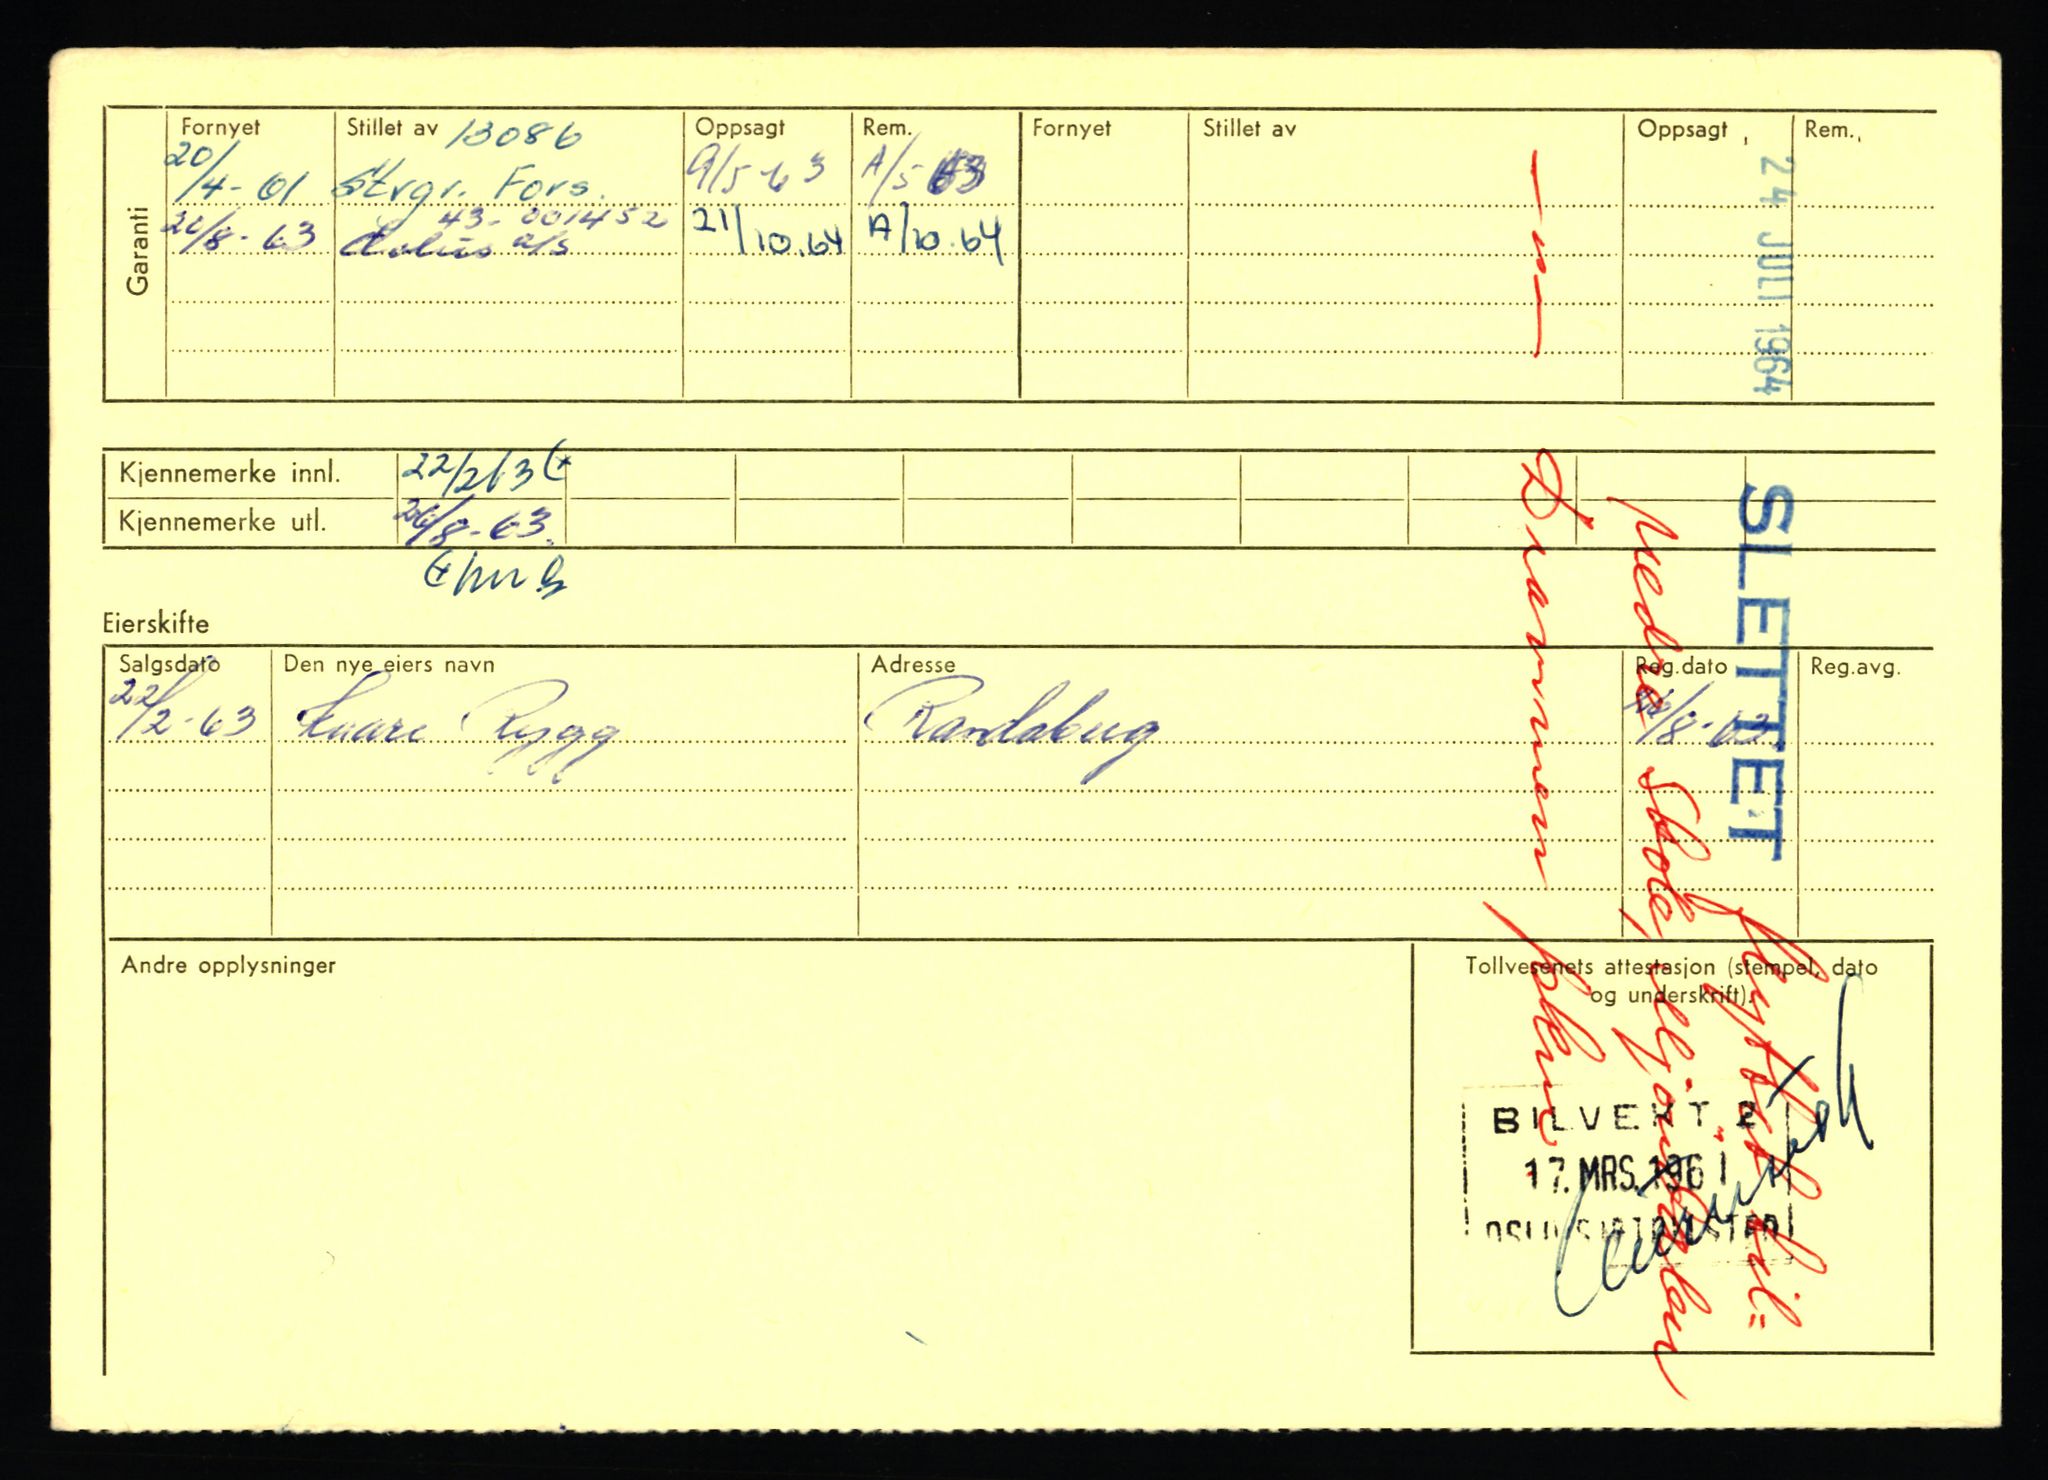 Garanti
Fornyet Stillet av 13086 Oppsagt Rem. Fornyet Stillet av Oppsagt Rem.
20/4-61 Strgr. Fors. 9/5-63 A/5 63
43-001452
20/8-63 Æolus a/s 21/10.64 A/10.64
Kjennemerke innl. 22/2 63
Kjennemerke utl. 26/8-63.
Eierskifte
Salgsdato Den nye eiers navn Adresse Reg.dato Reg.avg.
22/2-63 Kaare Rygg Randaberg 26/8-63
Andre opplysninger
Tollvesenets attestasjon (stempel, dato
og underskrift).
BILVEKT 2
17. MRS. 1961
24 JULI 1964
SLETTET
til:
nedre
Drammen